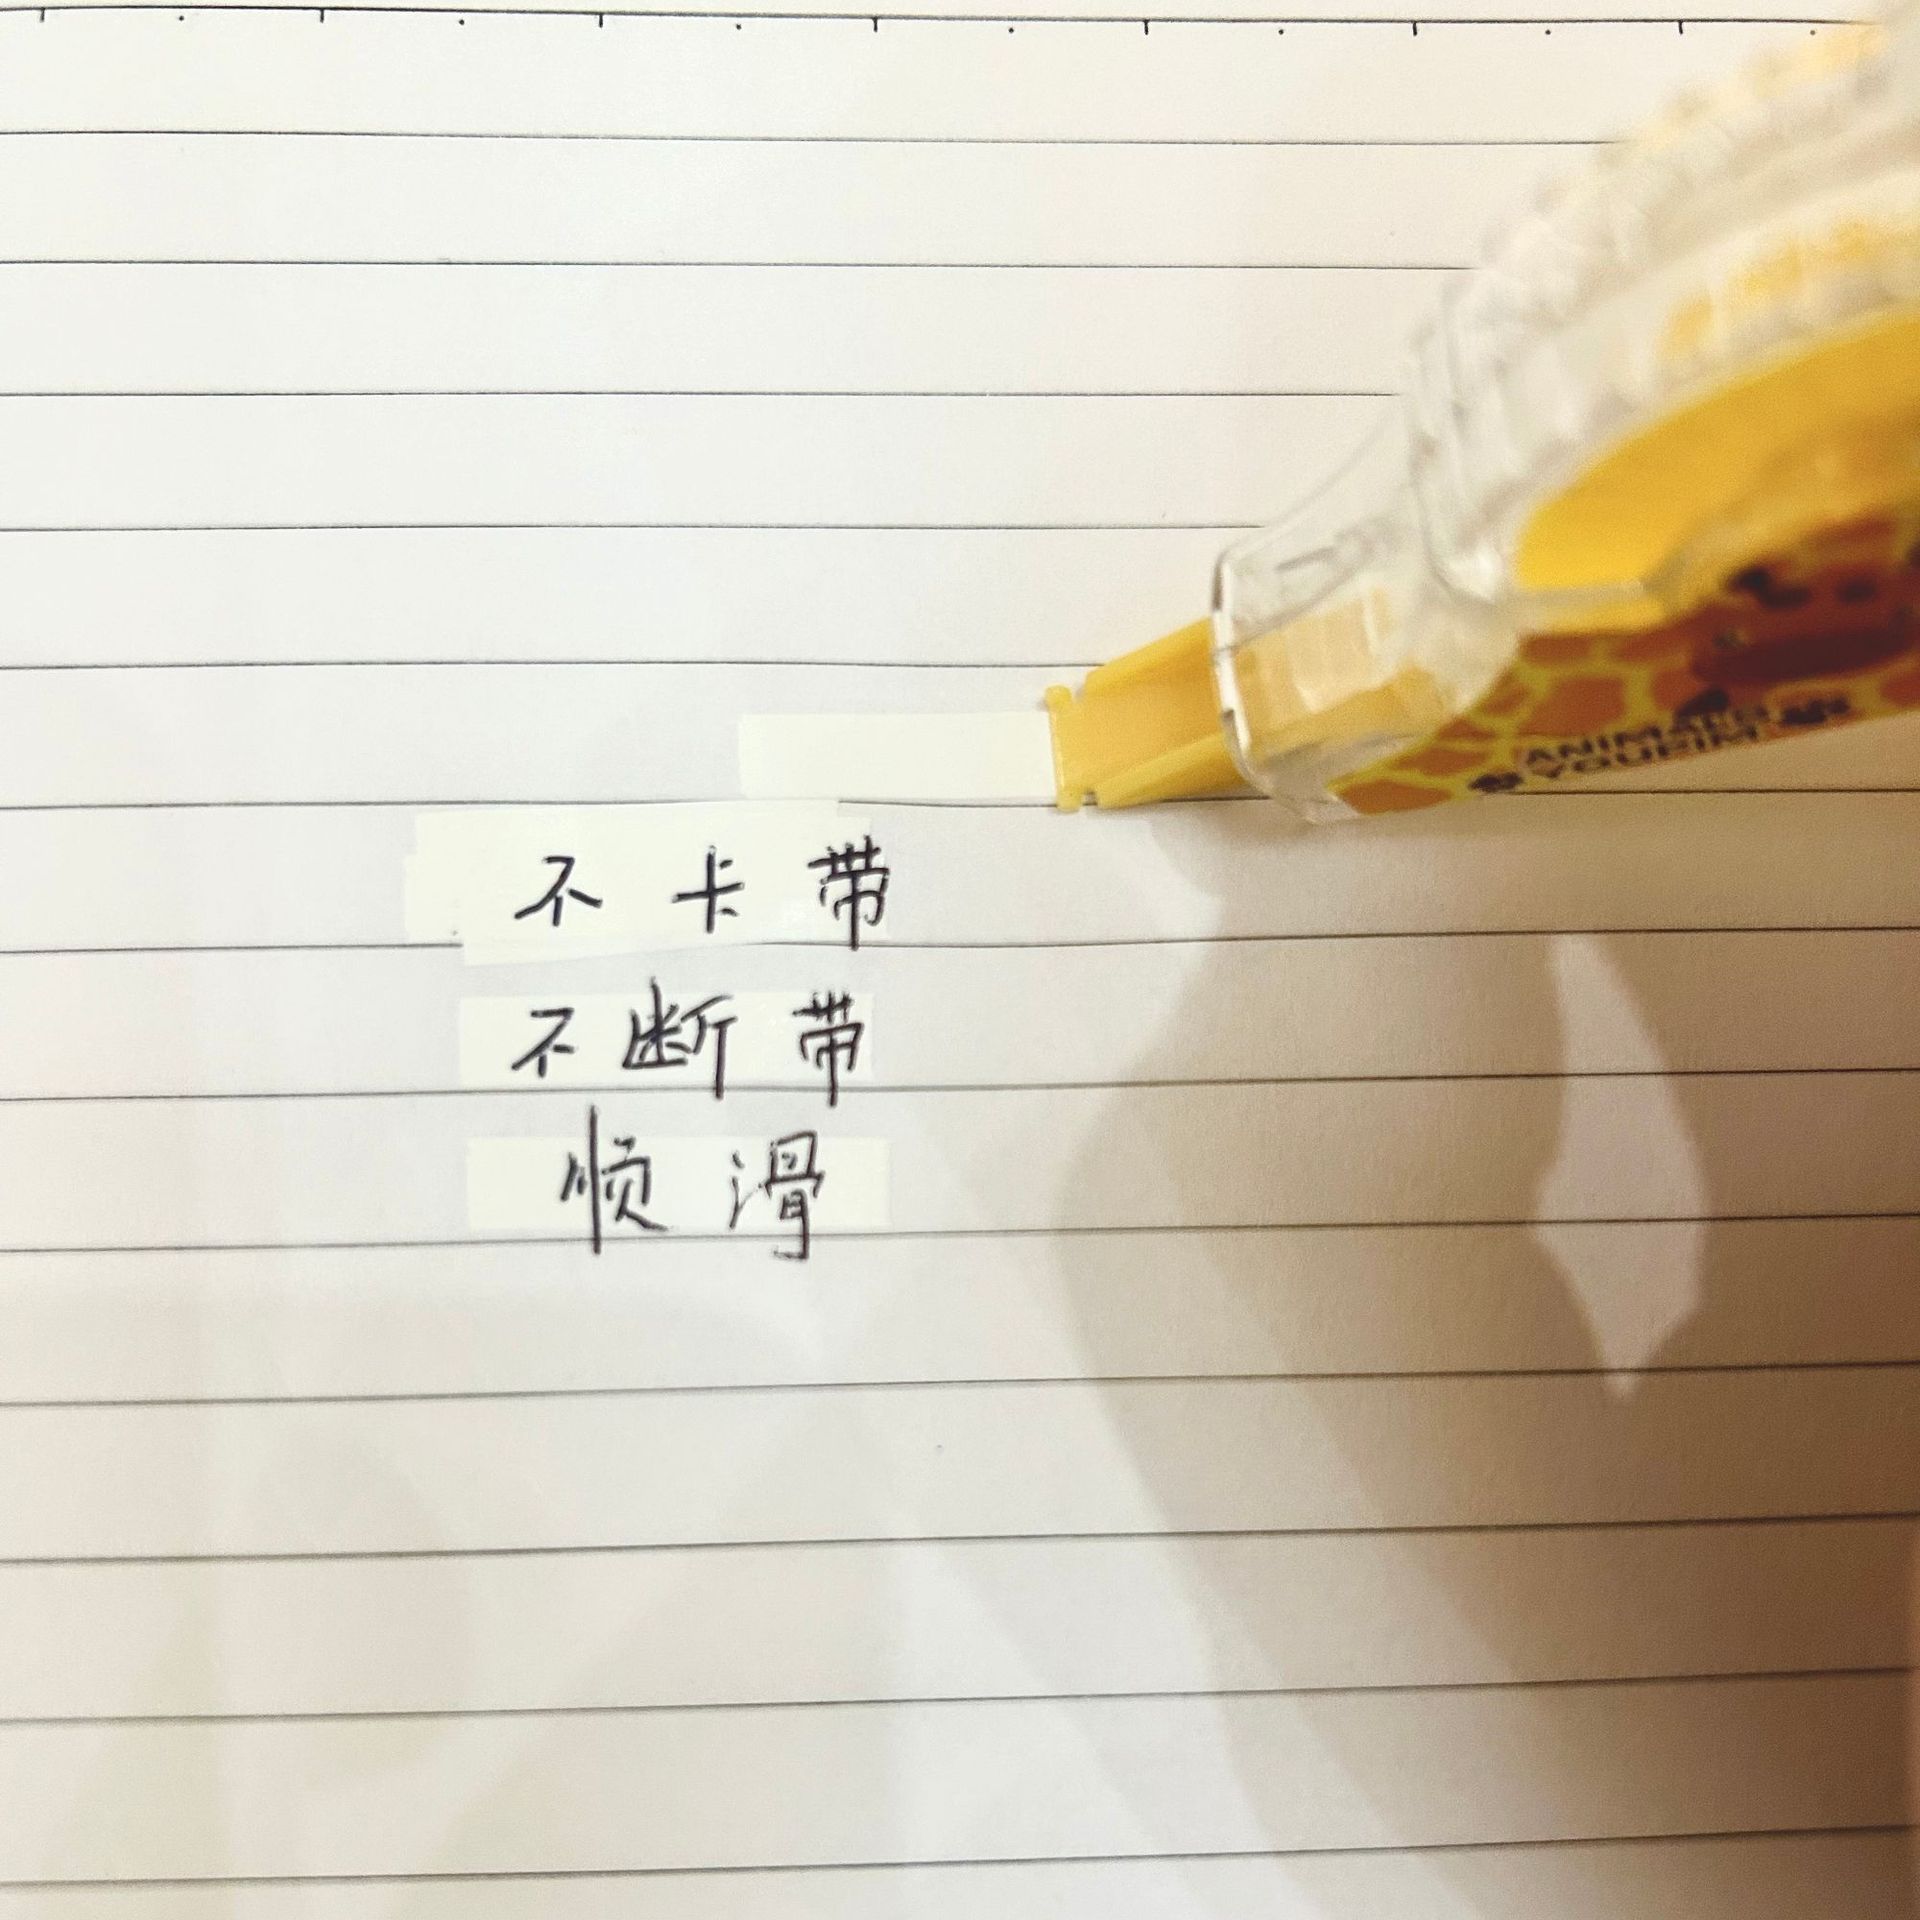 ANIMALS
不卡带
不断带
顺滑